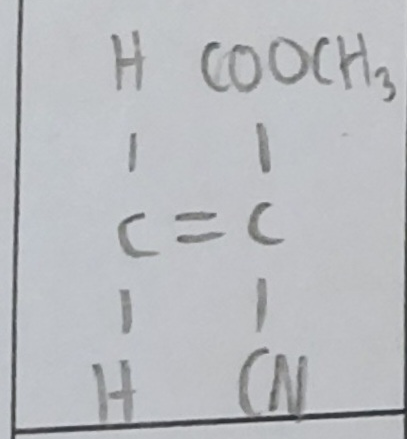 H COOCH₃
| |
C = C
| |
H CN